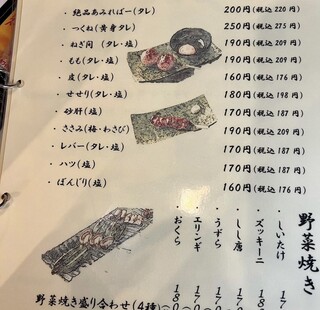 ・絶品あみればー(タレ) 200円(税込 220円)
・つくね(黄身タレ) 250円(税込 275円)
・ねぎ間(タレ・塩) 190円(税込 209円)
・もも(タレ・塩) 190円(税込 209円)
・皮(タレ・塩) 160円(税込 176円)
・せせり(タレ・塩) 180円(税込 198円)
・砂肝(塩) 170円(税込 187円)
・ささみ(梅・わさび) 190円(税込 209円)
・レバー(タレ・塩) 170円(税込 187円)
・ハツ(塩) 170円(税込 187円)
・ぼんじり(塩) 160円(税込 176円)
野菜焼き
・しいたけ 17
・ズッキーニ 18
・しし唐 170
・うずら 170
・エリンギ 170
・おくら 180
野菜焼き盛り合わせ(4種)